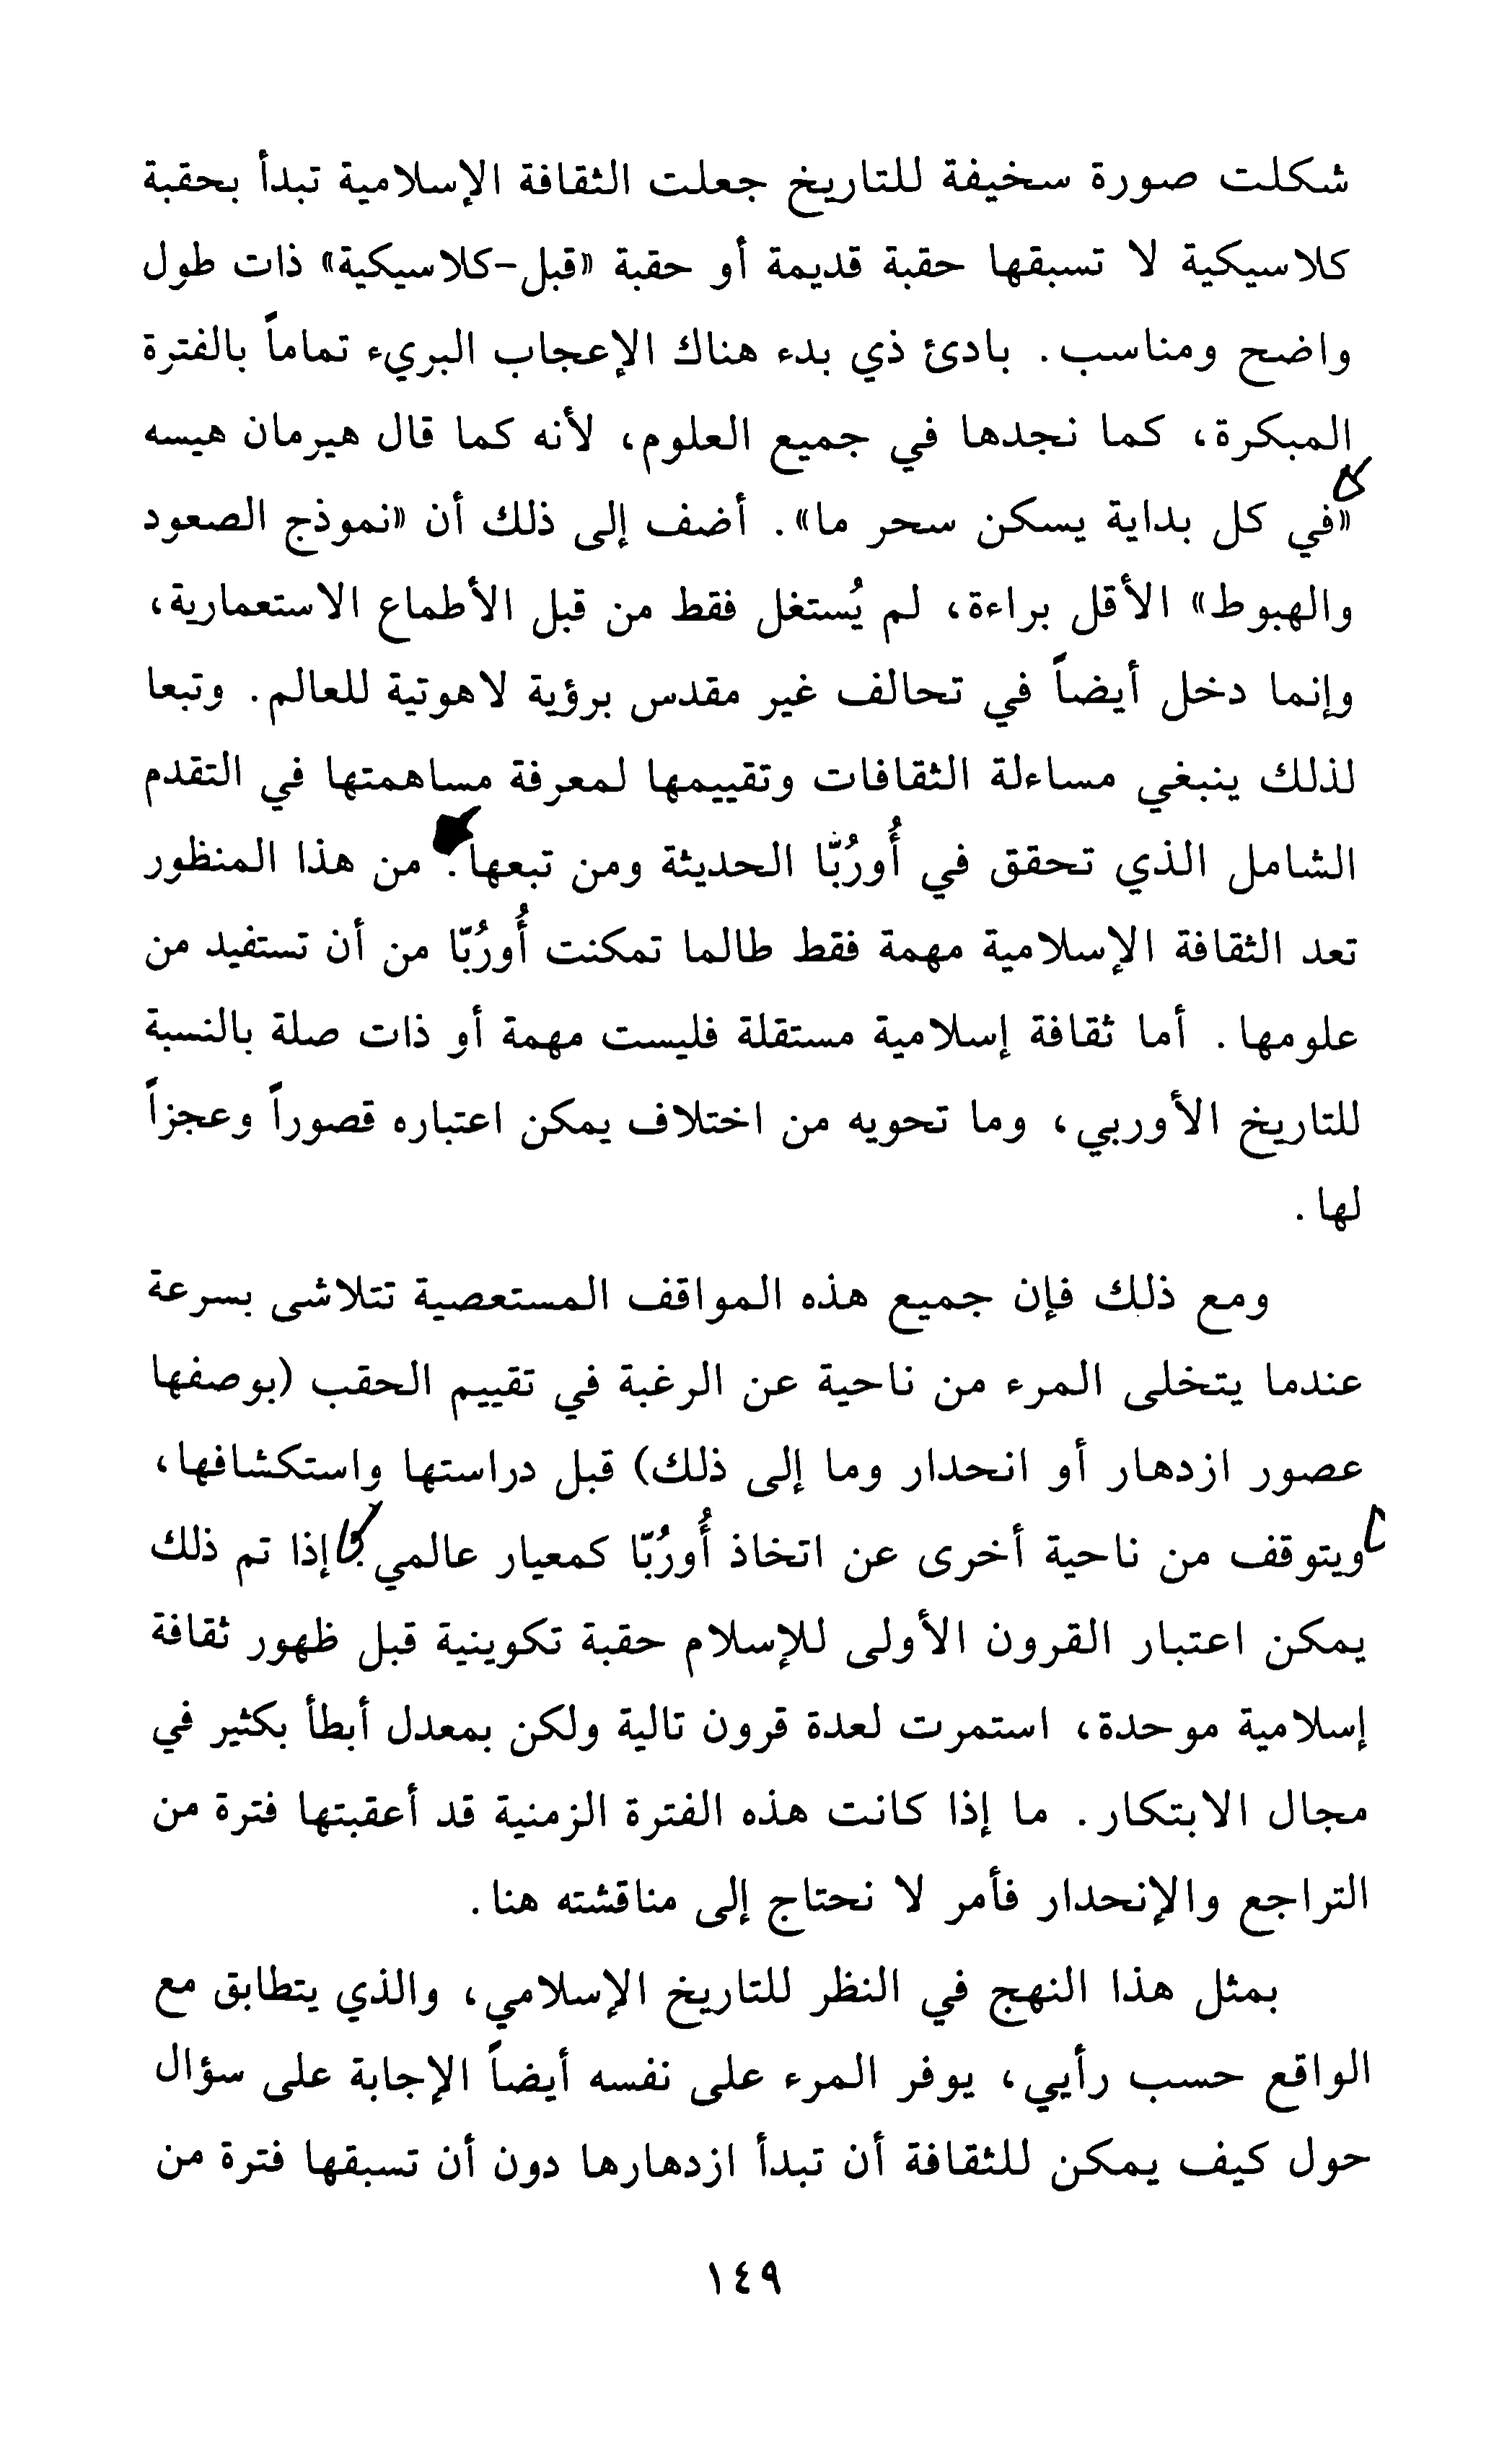 شكلت صورة سخيفة للتاريخ جعلت الثقافة الإسلامية تبدأ بحقبة
كلاسيكية لا تسبقها حقبة قديمة أو حقبة «قبل-كلاسيكية» ذات طول
واضح ومناسب. بادئ ذي بدء هناك الإعجاب البريء تماماً بالفترة
المبكرة، كما نجدها في جميع العلوم، لأنه كما قال هيرمان هيسه
«في كل بداية يسكن سحر ما». أضف إلى ذلك أن «نموذج الصعود
والهبوط» الأقل براءة، لم يُستغل فقط من قبل الأطماع الاستعمارية،
وإنما دخل أيضاً في تحالف غير مقدس برؤية لاهوتية للعالم. وتبعا
لذلك ينبغي مساءلة الثقافات وتقييمها لمعرفة مساهمتها في التقدم
الشامل الذي تحقق في أُورُبّا الحديثة ومن تبعها. من هذا المنظور
تعد الثقافة الإسلامية مهمة فقط طالما تمكنت أُورُبّا من أن تستفيد من
علومها. أما ثقافة إسلامية مستقلة فليست مهمة أو ذات صلة بالنسبة
للتاريخ الأوربي، وما تحويه من اختلاف يمكن اعتباره قصوراً وعجزاً
لها.
ومع ذلك فإن جميع هذه المواقف المستعصية تتلاشى بسرعة
عندما يتخلى المرء من ناحية عن الرغبة في تقييم الحقب (بوصفها
عصور ازدهار أو انحدار وما إلى ذلك) قبل دراستها واستكشافها،
ويتوقف من ناحية أخرى عن اتخاذ أُورُبّا كمعيار عالمي. إذا تم ذلك
يمكن اعتبار القرون الأولى للإسلام حقبة تكوينية قبل ظهور ثقافة
إسلامية موحدة، استمرت لعدة قرون تالية ولكن بمعدل أبطأ بكثير في
مجال الابتكار. ما إذا كانت هذه الفترة الزمنية قد أعقبتها فترة من
التراجع والإنحدار فأمر لا نحتاج إلى مناقشته هنا.
بمثل هذا النهج في النظر للتاريخ الإسلامي، والذي يتطابق مع
الواقع حسب رأيي، يوفر المرء على نفسه أيضاً الإجابة على سؤال
حول كيف يمكن للثقافة أن تبدأ ازدهارها دون أن تسبقها فترة من
١٤٩